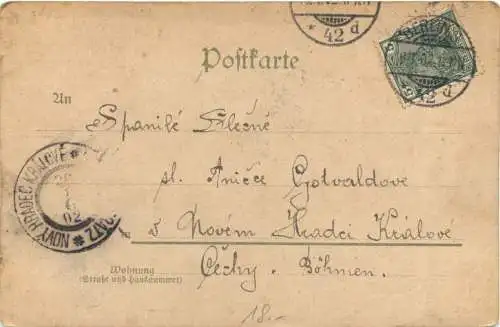 42 d
Postkarte
BERLIN
42 d
An
Spanilé Slečně
sl. Aničce Gotvaldove
NOVÝ HRADEC KRÁLOVÉ
02
v Novém Hradci Králové
Čechy. Böhmen.
Wohnung
(Straße und Hausnummer)
18.-